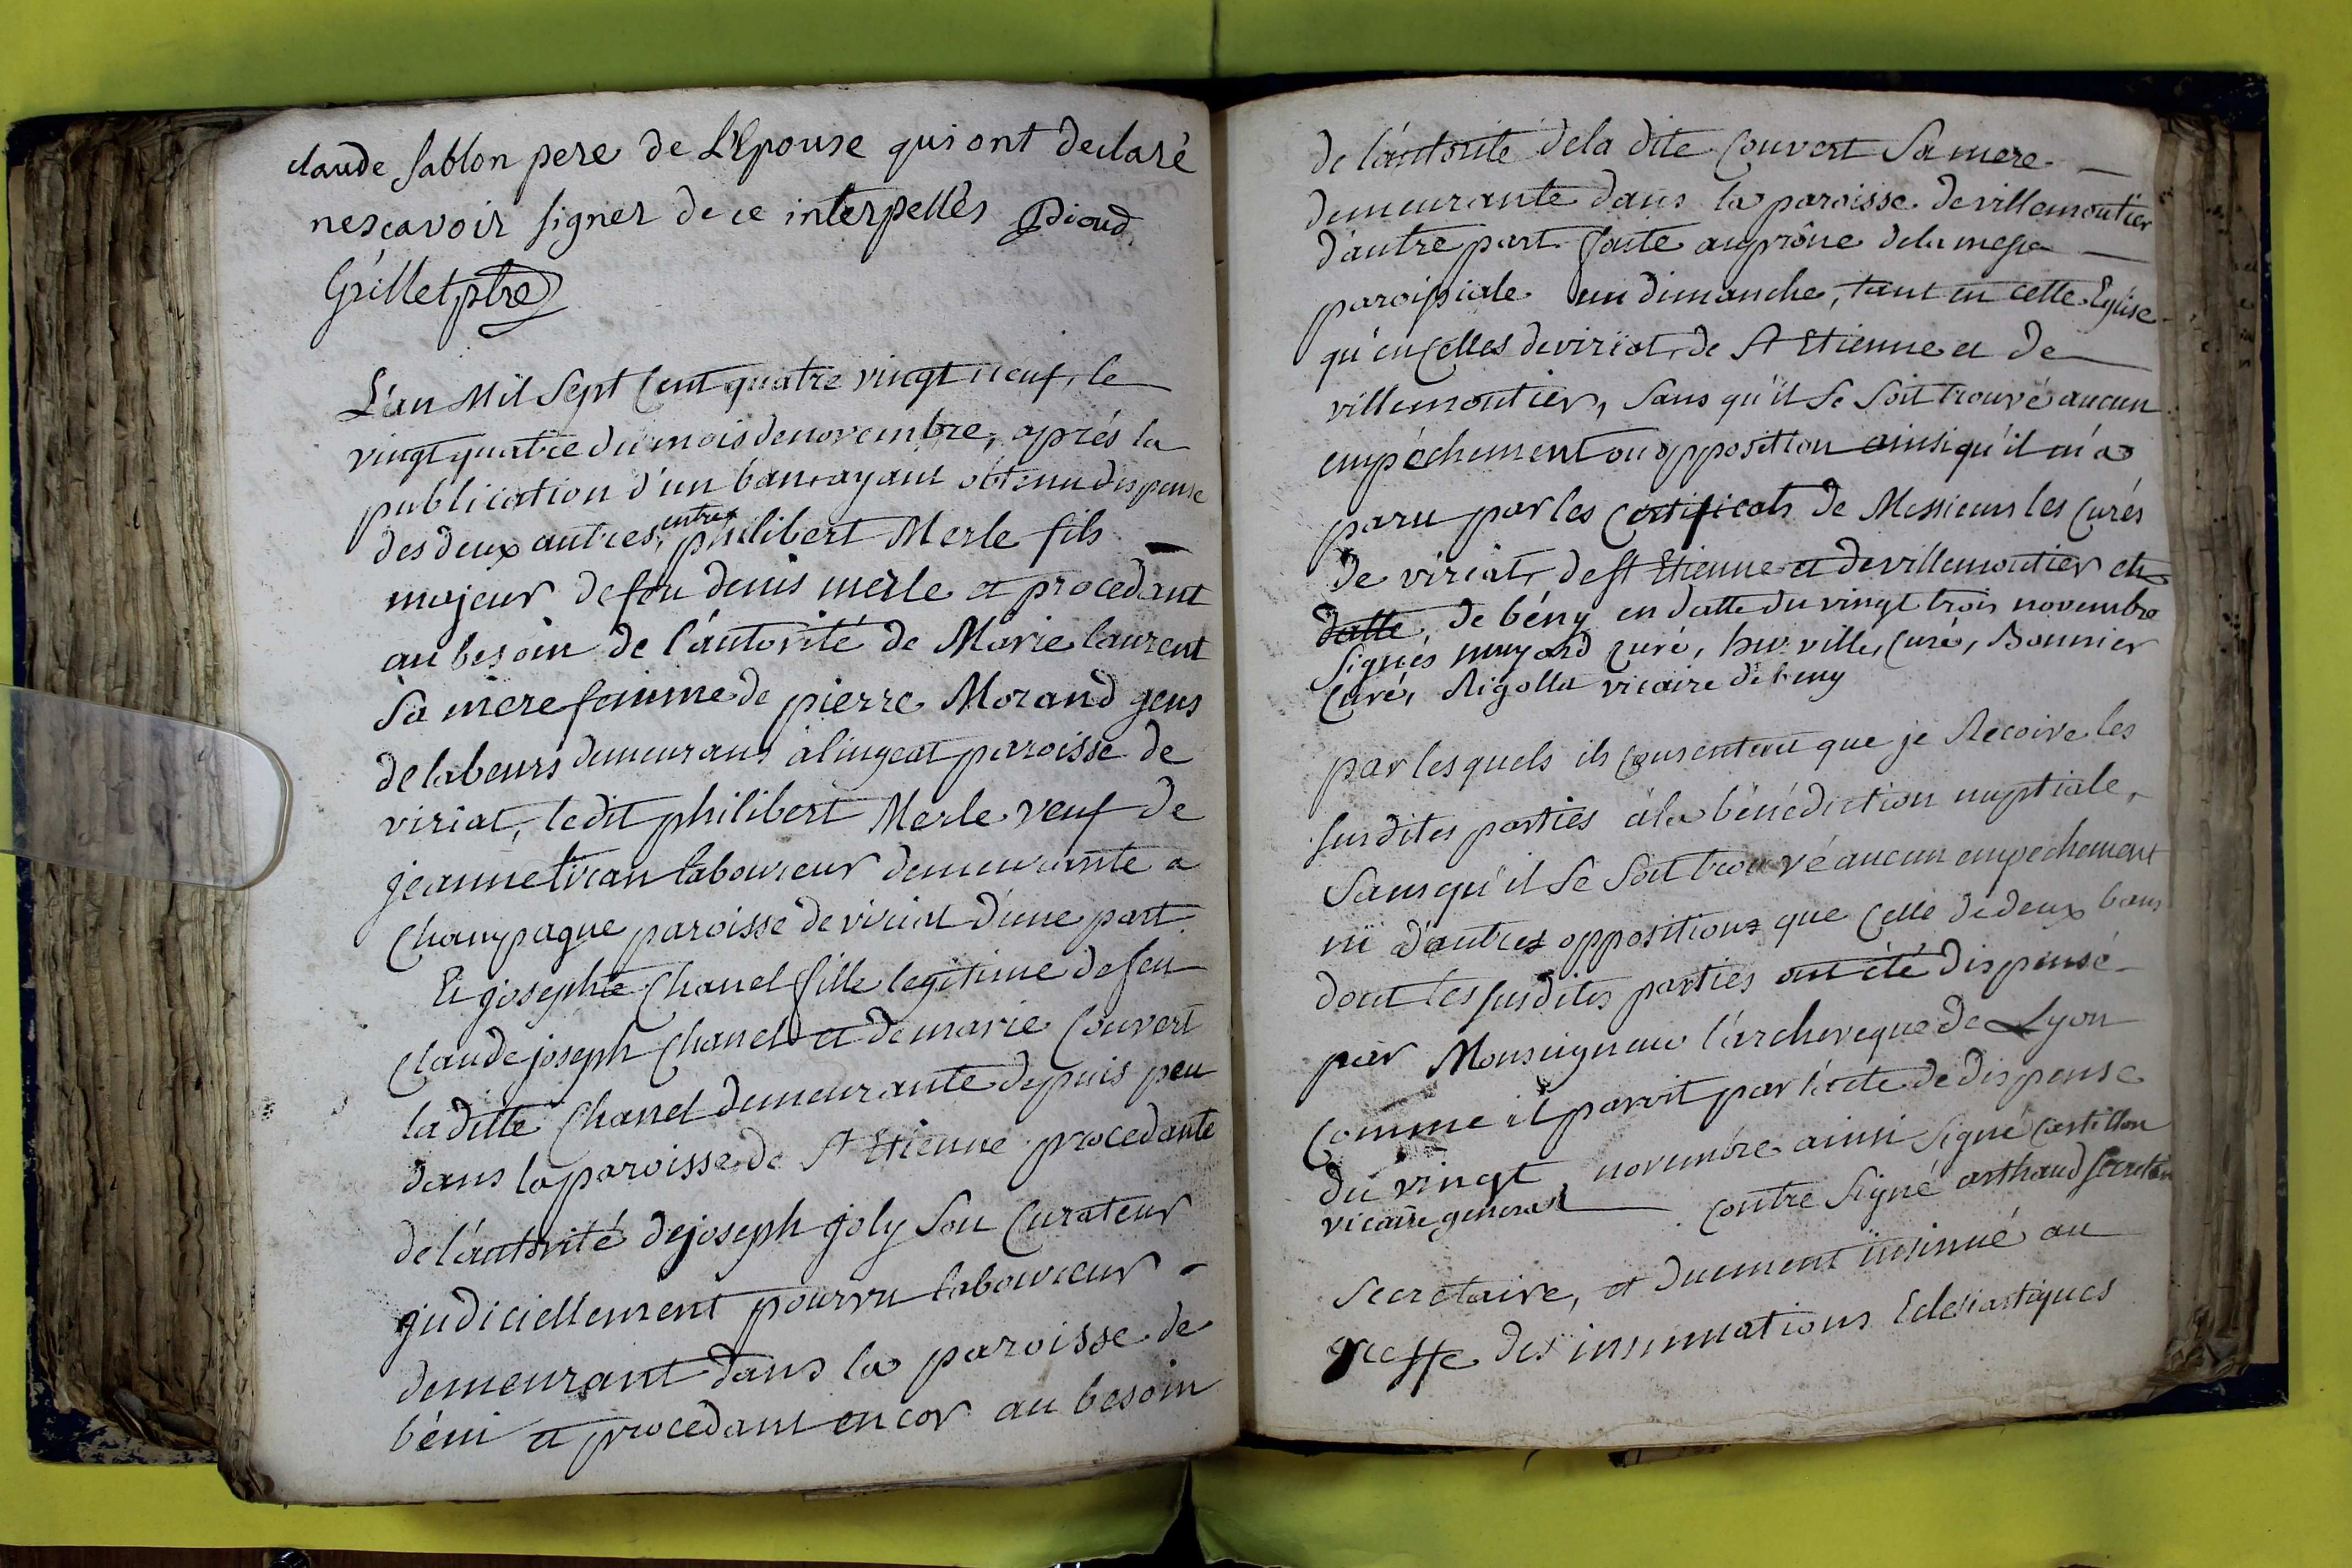 claude sablon pere de L'Epouse qui ont declaré
nesçavoir signer de ce interpellés Pioud
Grillet ptre
L'an Mil Sept Cent quatre vingt neuf, le
vingt quatre du mois de novembre, aprés la
publication d'un ban, ayant obtenu dispense
des deux autres, entre philibert Merle fils
majeur de feu denis merle et procedant
au besoin de l'autorité de Marie laurent
Sa mere femme de pierre Morand gens
de labeurs demeurans à lingeat paroisse de
viriat, ledit philibert Merle veuf de
jeanne tiran laboureur demeurante a
Champagne paroisse de viriat d'une part.
Et josephte Chanel fille legitime de feu
Claude joseph Chanel et de marie Couvert
la ditte Chanel demeurante depuis peu
dans la paroisse de St Etienne procedante
de l'autorité de joseph joly Son Curateur
judiciellement pourvu laboureur
demeurant dans la paroisse de
béni et procedant encor au besoin
de l'autorité dela dite Couvert Sa mere
demeurante dans la paroisse de villemoutier
d'autre part faite au prône dela messe
paroissiale un dimanche, tant en cette Eglise
qu'en Celles de viriat, de St Etienne et de
villemoutier, Sans qu'il Se Soit trouvé aucun
empéchement ou opposition ainsi qu'il m'a
paru par les Certificats de Messieurs les Curés
de viriat, de St Etienne et de villemoutier en
datte, de bény en datte du vingt trois novembre
signés curé, ville, Curé, Bonnier
Curé, Rigollet vicaire de beny
par lesquels ils Consentent que je Recoive les
susdites parties à la bénédiction nuptiale,
Sans qu'il Se Soit trouvé aucun empechement
ni d'autres oppositions que Celle de deux bans
dont les susdites parties ont été dispensé
par Monseigneur l'archeveque de Lyon
Comme il paroit par l'acte de dispense
du vingt novembre ainsi Signé Castillon
vicaire general contre Signé arthaud secretaire
Secretaire, et duement insinué au
greffe des insinuations Eclesiastiques